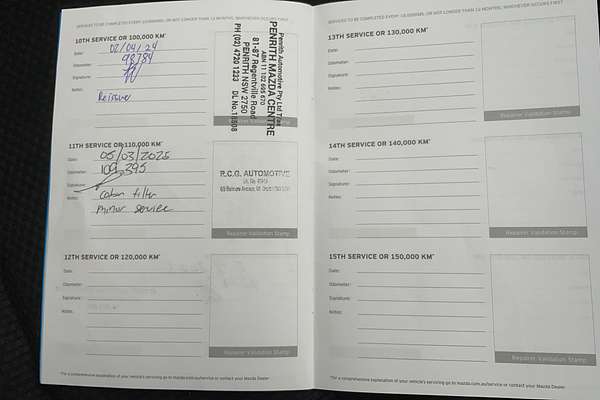 SERVICES TO BE COMPLETED EVERY 10,000KMS, OR NOT LONGER THAN 12 MONTHS, WHICHEVER OCCURS FIRST
10TH SERVICE OR 100,000 KM*
Date: 02/04/24
Odometer: 98784
Signature:
Notes:
Reissue
Penrith Automotive Pty Ltd T/as
PENRITH MAZDA CENTRE
81-87 Regentville Road
PENRITH NSW 2750
PH (02) 4720 1223
Validation Stamp
11TH SERVICE OR 110,000 KM*
Date: 05/03/2025
Odometer: 109,395
Signature:
Notes: Cabin filter
Minor service
R.C.G. AUTOMOTIVE
Repairer Validation Stamp
12TH SERVICE OR 120,000 KM*
Date:
Odometer:
Signature:
Notes:
Repairer Validation Stamp
*For a comprehensive explanation of your vehicle's servicing go to mazda.com.au/service or contact your Mazda Dealer
SERVICES TO BE COMPLETED EVERY 10,000KMS, OR NOT LONGER THAN 12 MONTHS, WHICHEVER OCCURS FIRST
13TH SERVICE OR 130,000 KM*
Date:
Odometer:
Signature:
Notes:
Repairer Validation Stamp
14TH SERVICE OR 140,000 KM*
Date:
Odometer:
Signature:
Notes:
Repairer Validation Stamp
15TH SERVICE OR 150,000 KM*
Date:
Odometer:
Signature:
Notes:
Repairer Validation Stamp
*For a comprehensive explanation of your vehicle's servicing go to mazda.com.au/service or contact your Mazda Dealer